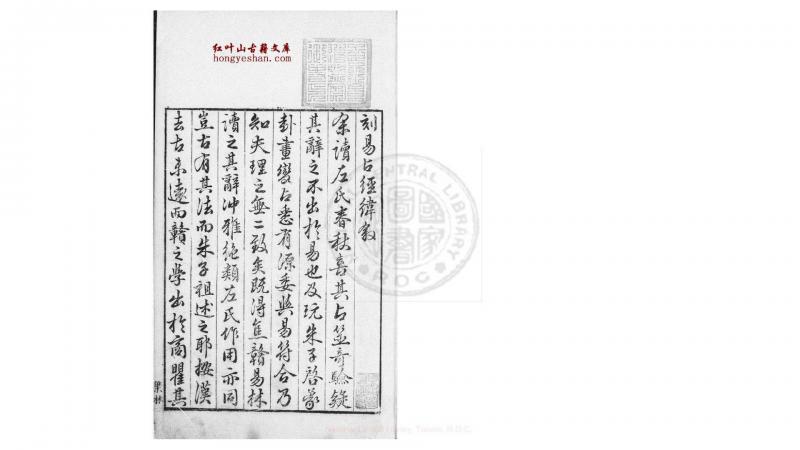 红叶山古籍文库
hongyeshan.com
刻易占經緯敘
余讀左氏春秋喜其占筮奇驗疑
其辭之不出於易也及玩朱子啓蒙
卦畫變占悉有源委與易符合乃
知夫理之無二致矣既得焦贛易林
讀之其辭沖雅絶類左氏作用亦同
豈古有其法而朱子祖述之耶按漢
去古未遠而贛之學出於商瞿其
CENTRAL LIBRARY
R.O.C.
國家
圖書
National Central Library, Taiwan, R.O.C.